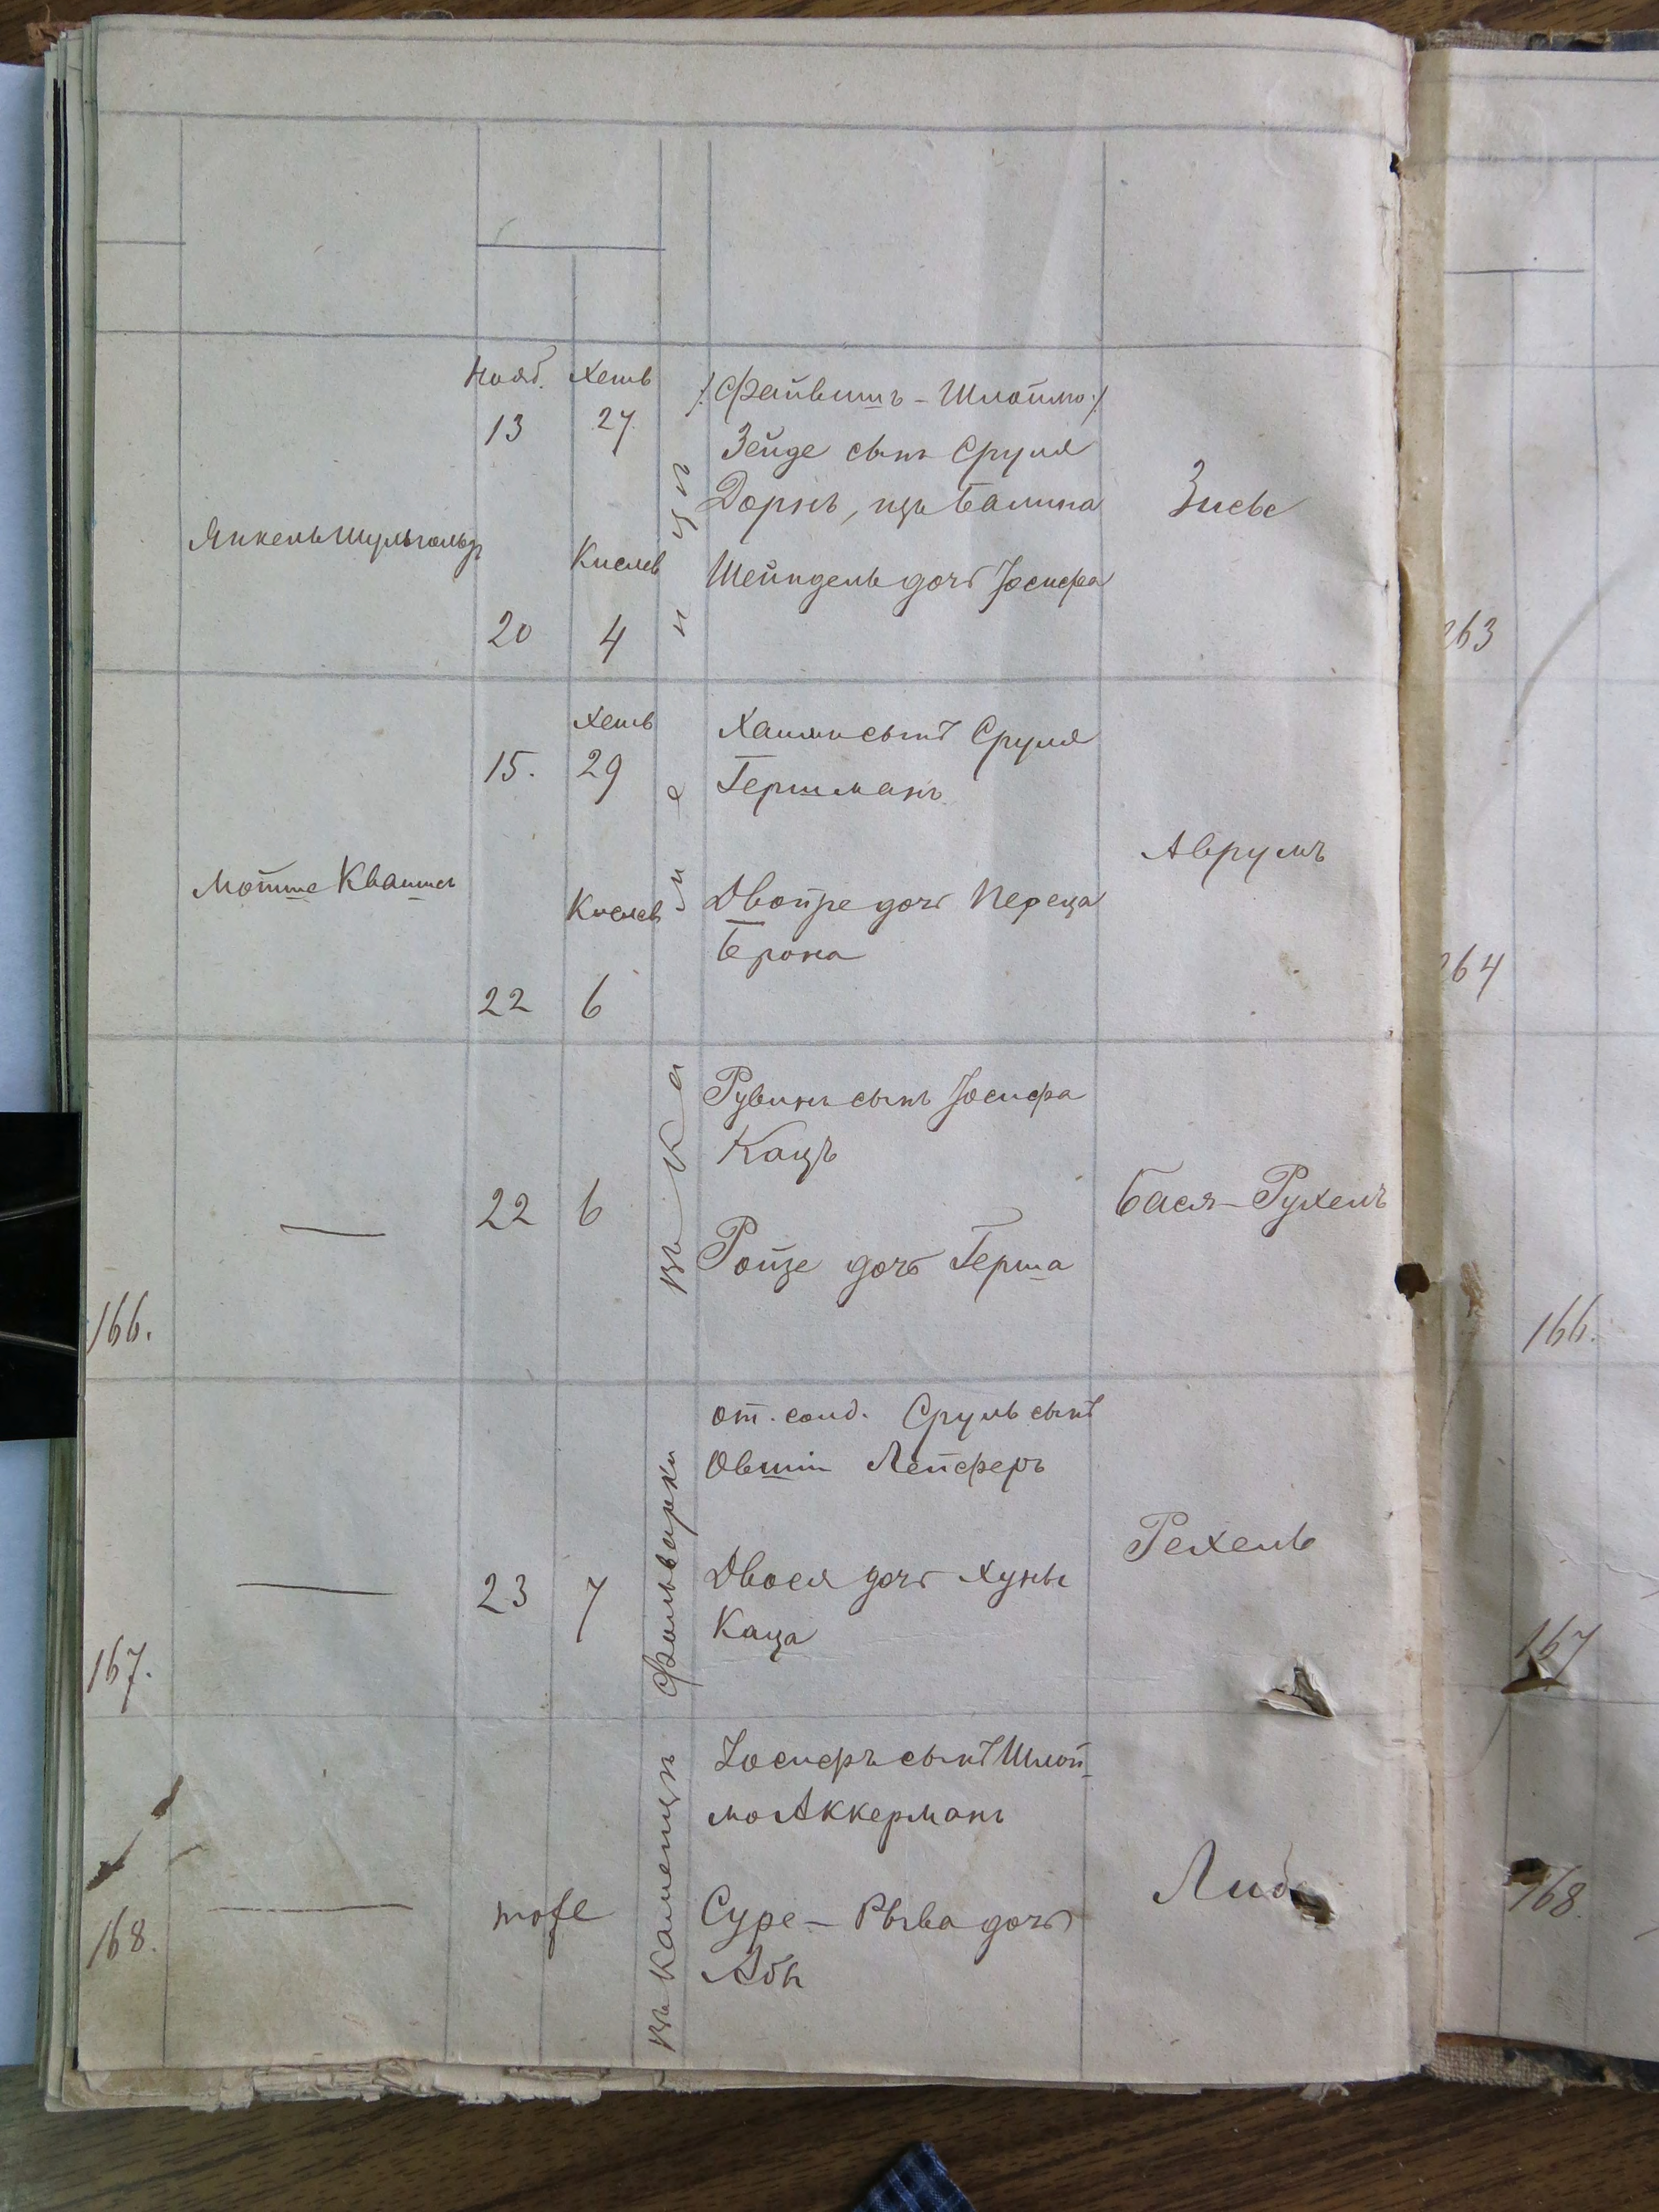 Нояб. Хешв
13 27
/: Файвишъ - Шлоймо :/
Зейде сынъ Сруля
Дорнъ, изъ Балина
Зисье
Янкель Шульгольдъ
Кислев
Шейндель дочь Іосифа
20 4
263
Хешв
15. 29
Хаимъ сынъ Сруля
Гершманъ
Аврумъ
Мотте Квашъ
Кислев
Двойре дочь Переца
Берона
22 6
264
въ Каменцѣ
Рувинъ сынъ Іосифа
Кацъ
— 22 6
Бася-Рухель
Ройзе дочь Герша
166.
166.
от. солд. Сруль сынъ
Овшія Лейферъ
Рехель
— 23 7
Двося дочь Хуны
Каца
167.
167
Фольварки
Іосифъ сынъ Шлой-
мо Аккерманъ
— тоже
Суре - Рыва дочь
Абы
168.
168.
въ Каменцѣ